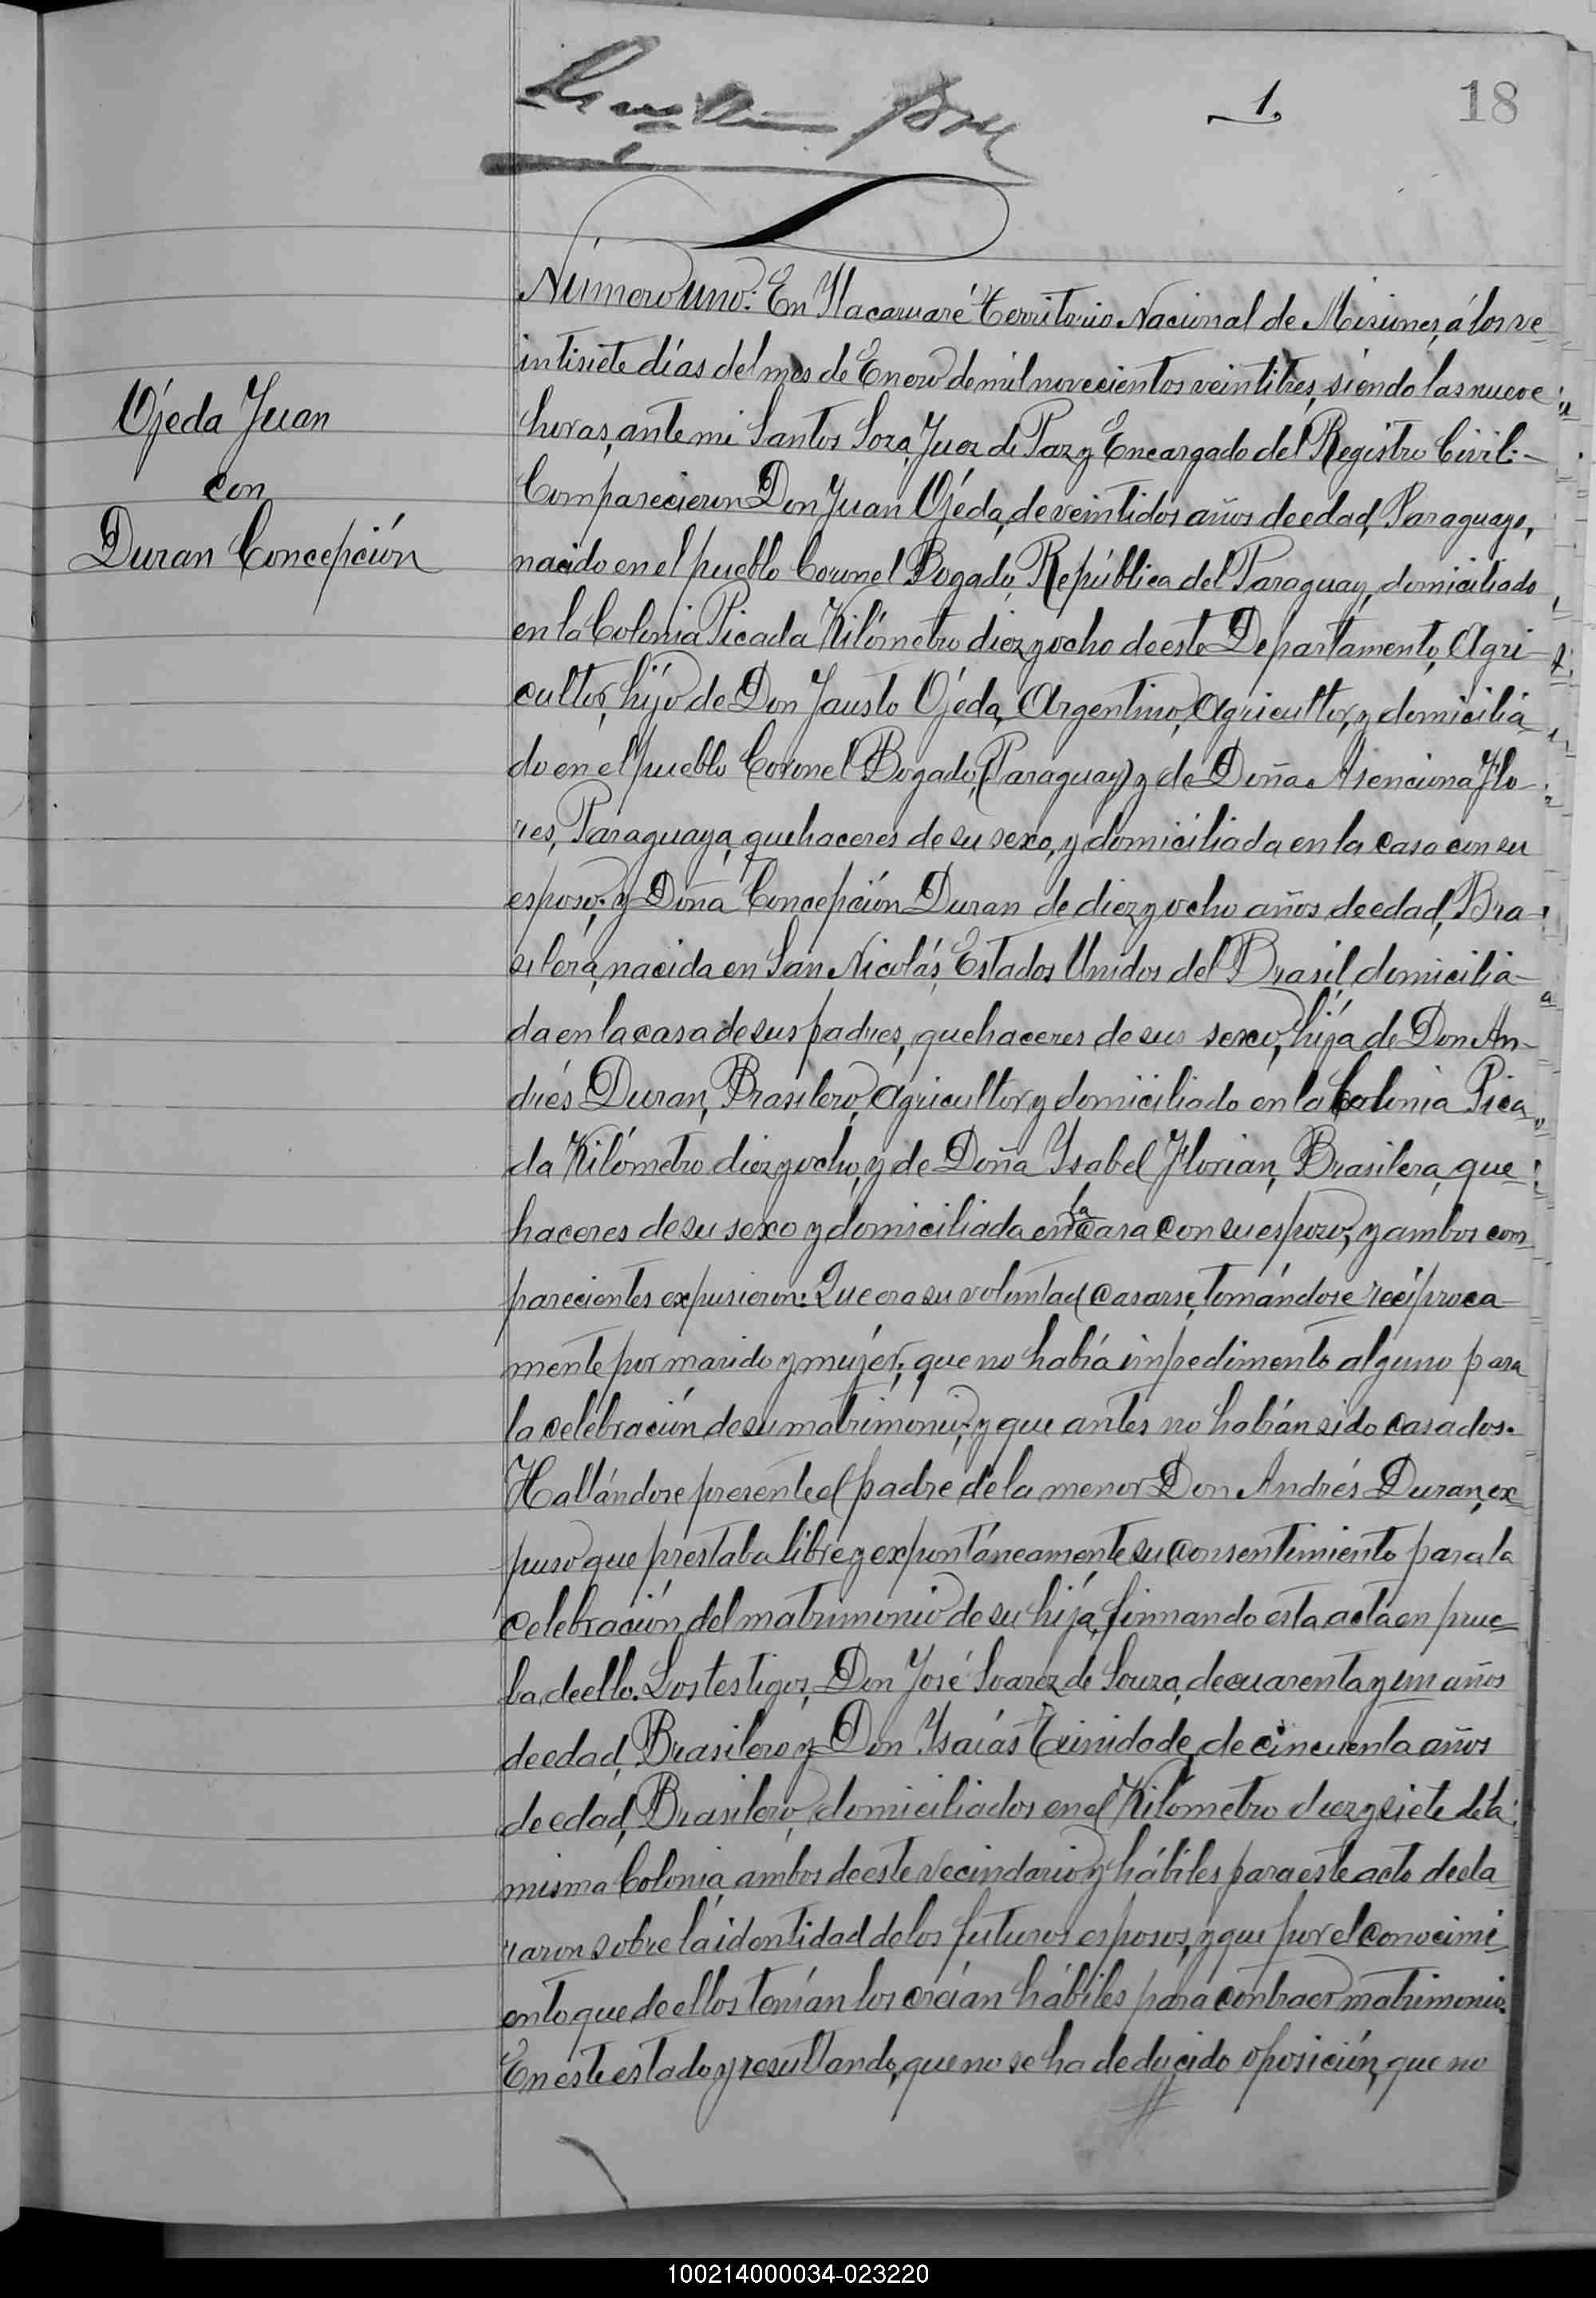 1.
18
Número uno: En Itacaruaré Territorio Nacional de Misiones, á los ve
intisiete días del mes de Enero de mil novecientos veintitres, siendo las nueve
horas, ante mi Santos Soza, Juez de Paz y Encargado del Registro Civil:-
Ojeda Juan
con
Duran Concepción
Comparecieron Don Juan Ojeda, de veintidos años de edad, Paraguayo,
nacido en el pueblo Coronel Bogado, República del Paraguay, domiciliado
en la Colonia Picada Kilómetro diez y ocho de este Departamento, Agri-
cultor, hijo de Don Fausto Ojeda, Argentino, Agricultor, y domicilia
do en el pueblo Coronel Bogado, (Paraguay) y de Doña Asenciona Flo-
res, Paraguaya, quehaceres de su sexo, y domiciliada en la casa con su
esposo; y Doña Concepción Duran de diez y ocho años de edad, Bra-
silera, nacida en San Nicolás, Estados Unidos del Brasil, domicilia-
da en la casa de sus padres, quehaceres de sus sexo, hija de Don An-
drés Duran, Brasilero, Agricultor y domiciliado en la Colonia Pica
da Kilómetro diez y ocho, y de Doña Ysabel Florian, Brasilera, que
haceres de su sexo y domiciliada en la casa con su esposo, y ambos com
parecientes expusieron: Que era su voluntad casarse, tomándose recíproca-
mente por marido y mujer; que no había impedimento alguno para
la celebración de su matrimonio; y que antes no habían sido casados.
Hallándose presente el padre de la menor Don Andrés Duran, ex
puso que prestaba libre y expontáneamente su consentimiento para la
celebración del matrimonio de su hija, firmando esta acta en prue-
ba de ello. Los testigos, Don José Soarez de Souza, de cuarenta y un años
de edad, Brasilero y Don Ysaías Trinidade, de cincuenta años
de edad, Brasilero, domiciliados en el Kilómetro diez y siete de la
misma Colonia, ambos de este vecindario y hábiles para este acto decla
raron sobre la identidad de los futuros esposos, y que por el conocimi
ento que de ellos tenían los creían hábiles para contraer matrimonio.
En este estado y resultando, que no se ha deducido oposición, que no
100214000034-023220